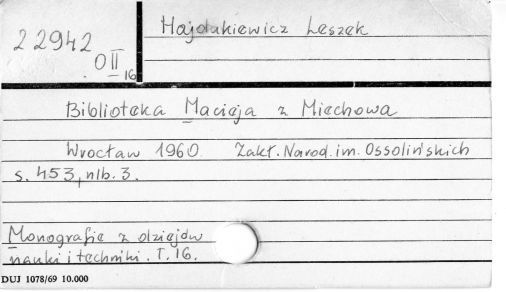 22942
OII
16
Hajdukiewicz Leszek
Biblioteka Macieja z Miechowa
Wrocław 1960 Zakł. Narod. im. Ossolińskich
s. 453, nlb. 3.
Monografie z dziejów
nauki i techniki. T. 16.
DUJ 1078/69 10.000